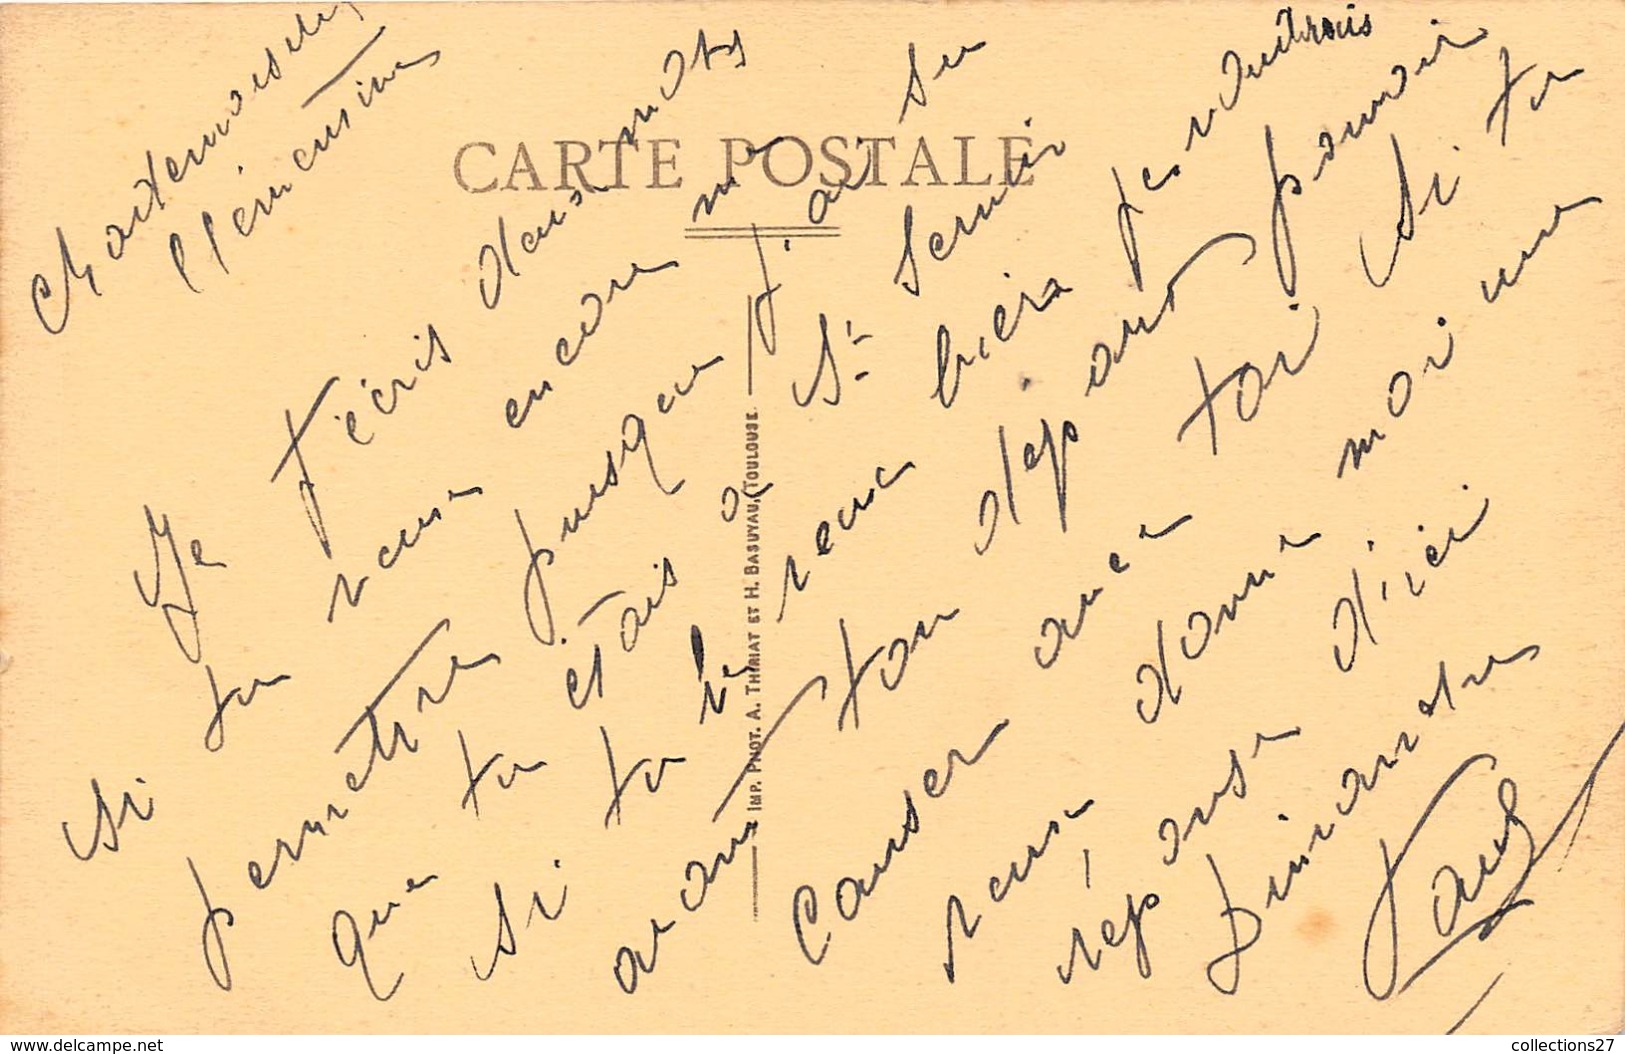 Mademoiselle
Clémentine
Je t'écris deux mots
si tu veux encore me
permettre puisque j'ai su
que tu étais à St Sernin
si tu le veux bien je voudrais
avant ton départ pouvoir
causer avec toi si tu
veux donne moi une
réponse d'ici
Dimanche
Paul
CARTE POSTALE
IMP. PHOT. A. THIRIAT ET H. BASUYAU, TOULOUSE
www.delcampe.net
collections27